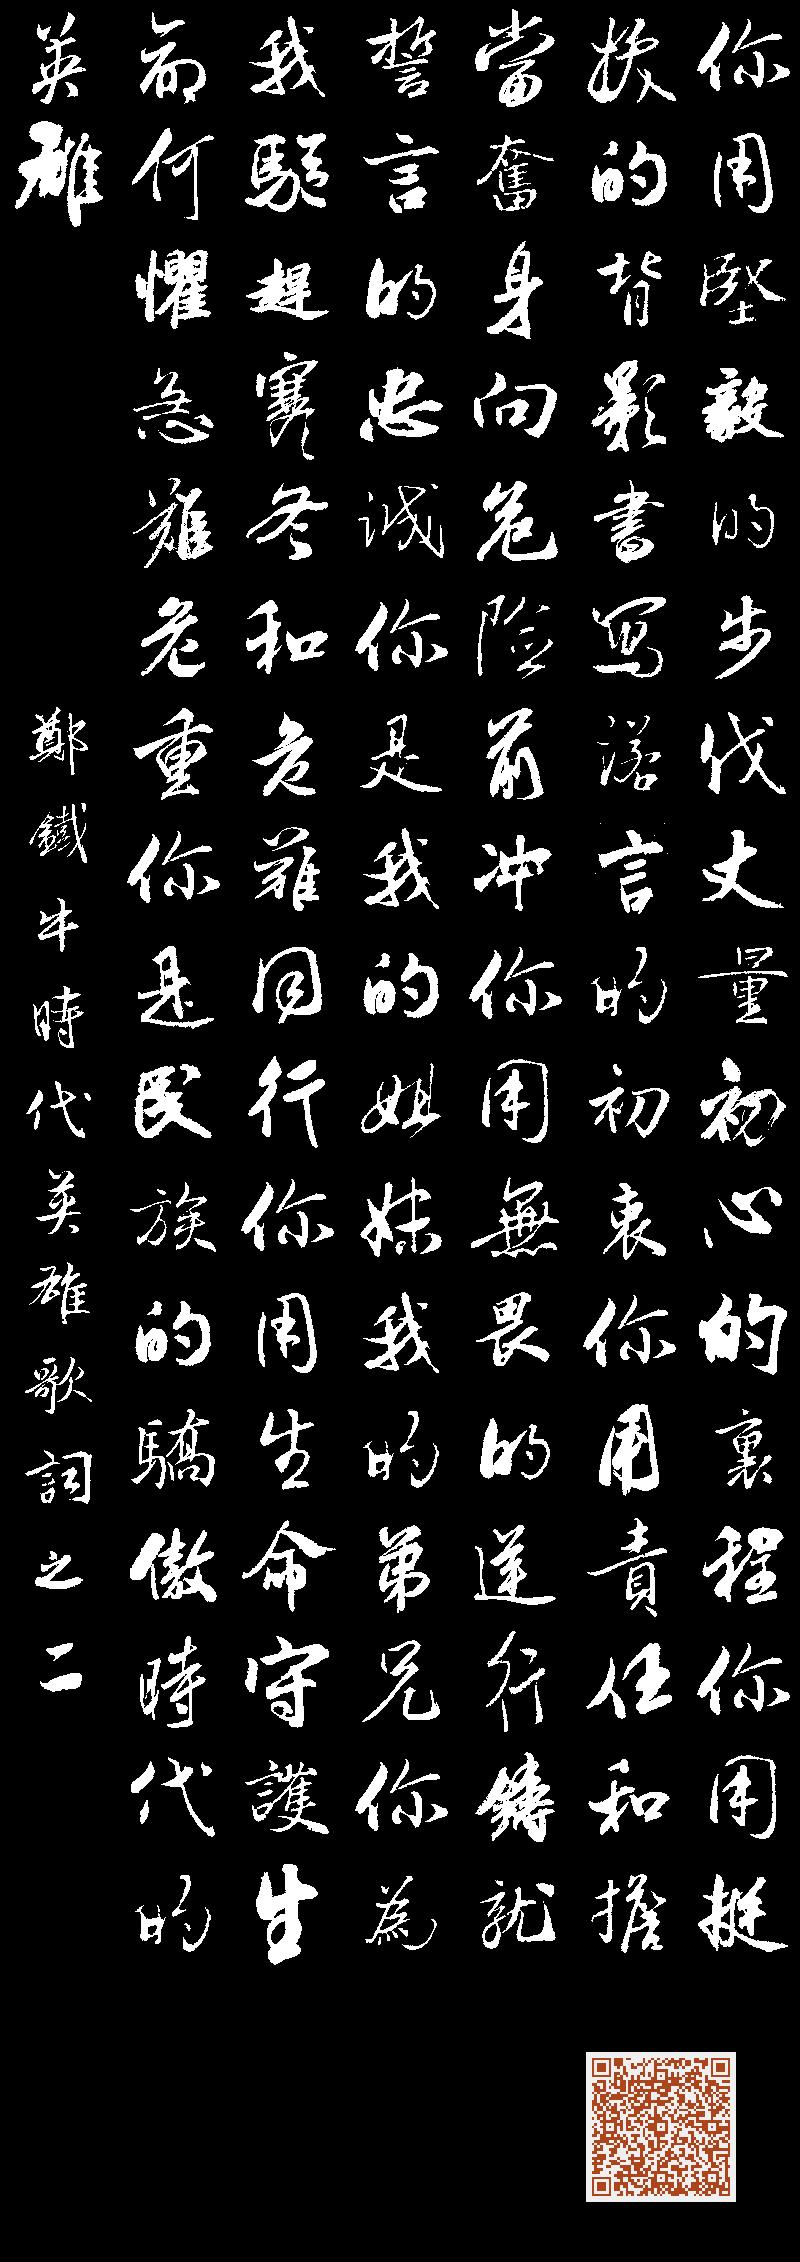 你用堅毅的步伐丈量初心的裏程你用挺
拔的背影書寫諾言的初衷你用責任和擔
當奮身向危險前冲你用無畏的逆行鑄就
誓言的忠誠你是我的姐妹我的弟兄你為
我驅趕寒冬和危難同行你用生命守護生
命何懼急難危重你是民族的驕傲時代的
英雄
鄭鐵牛時代英雄歌詞之二